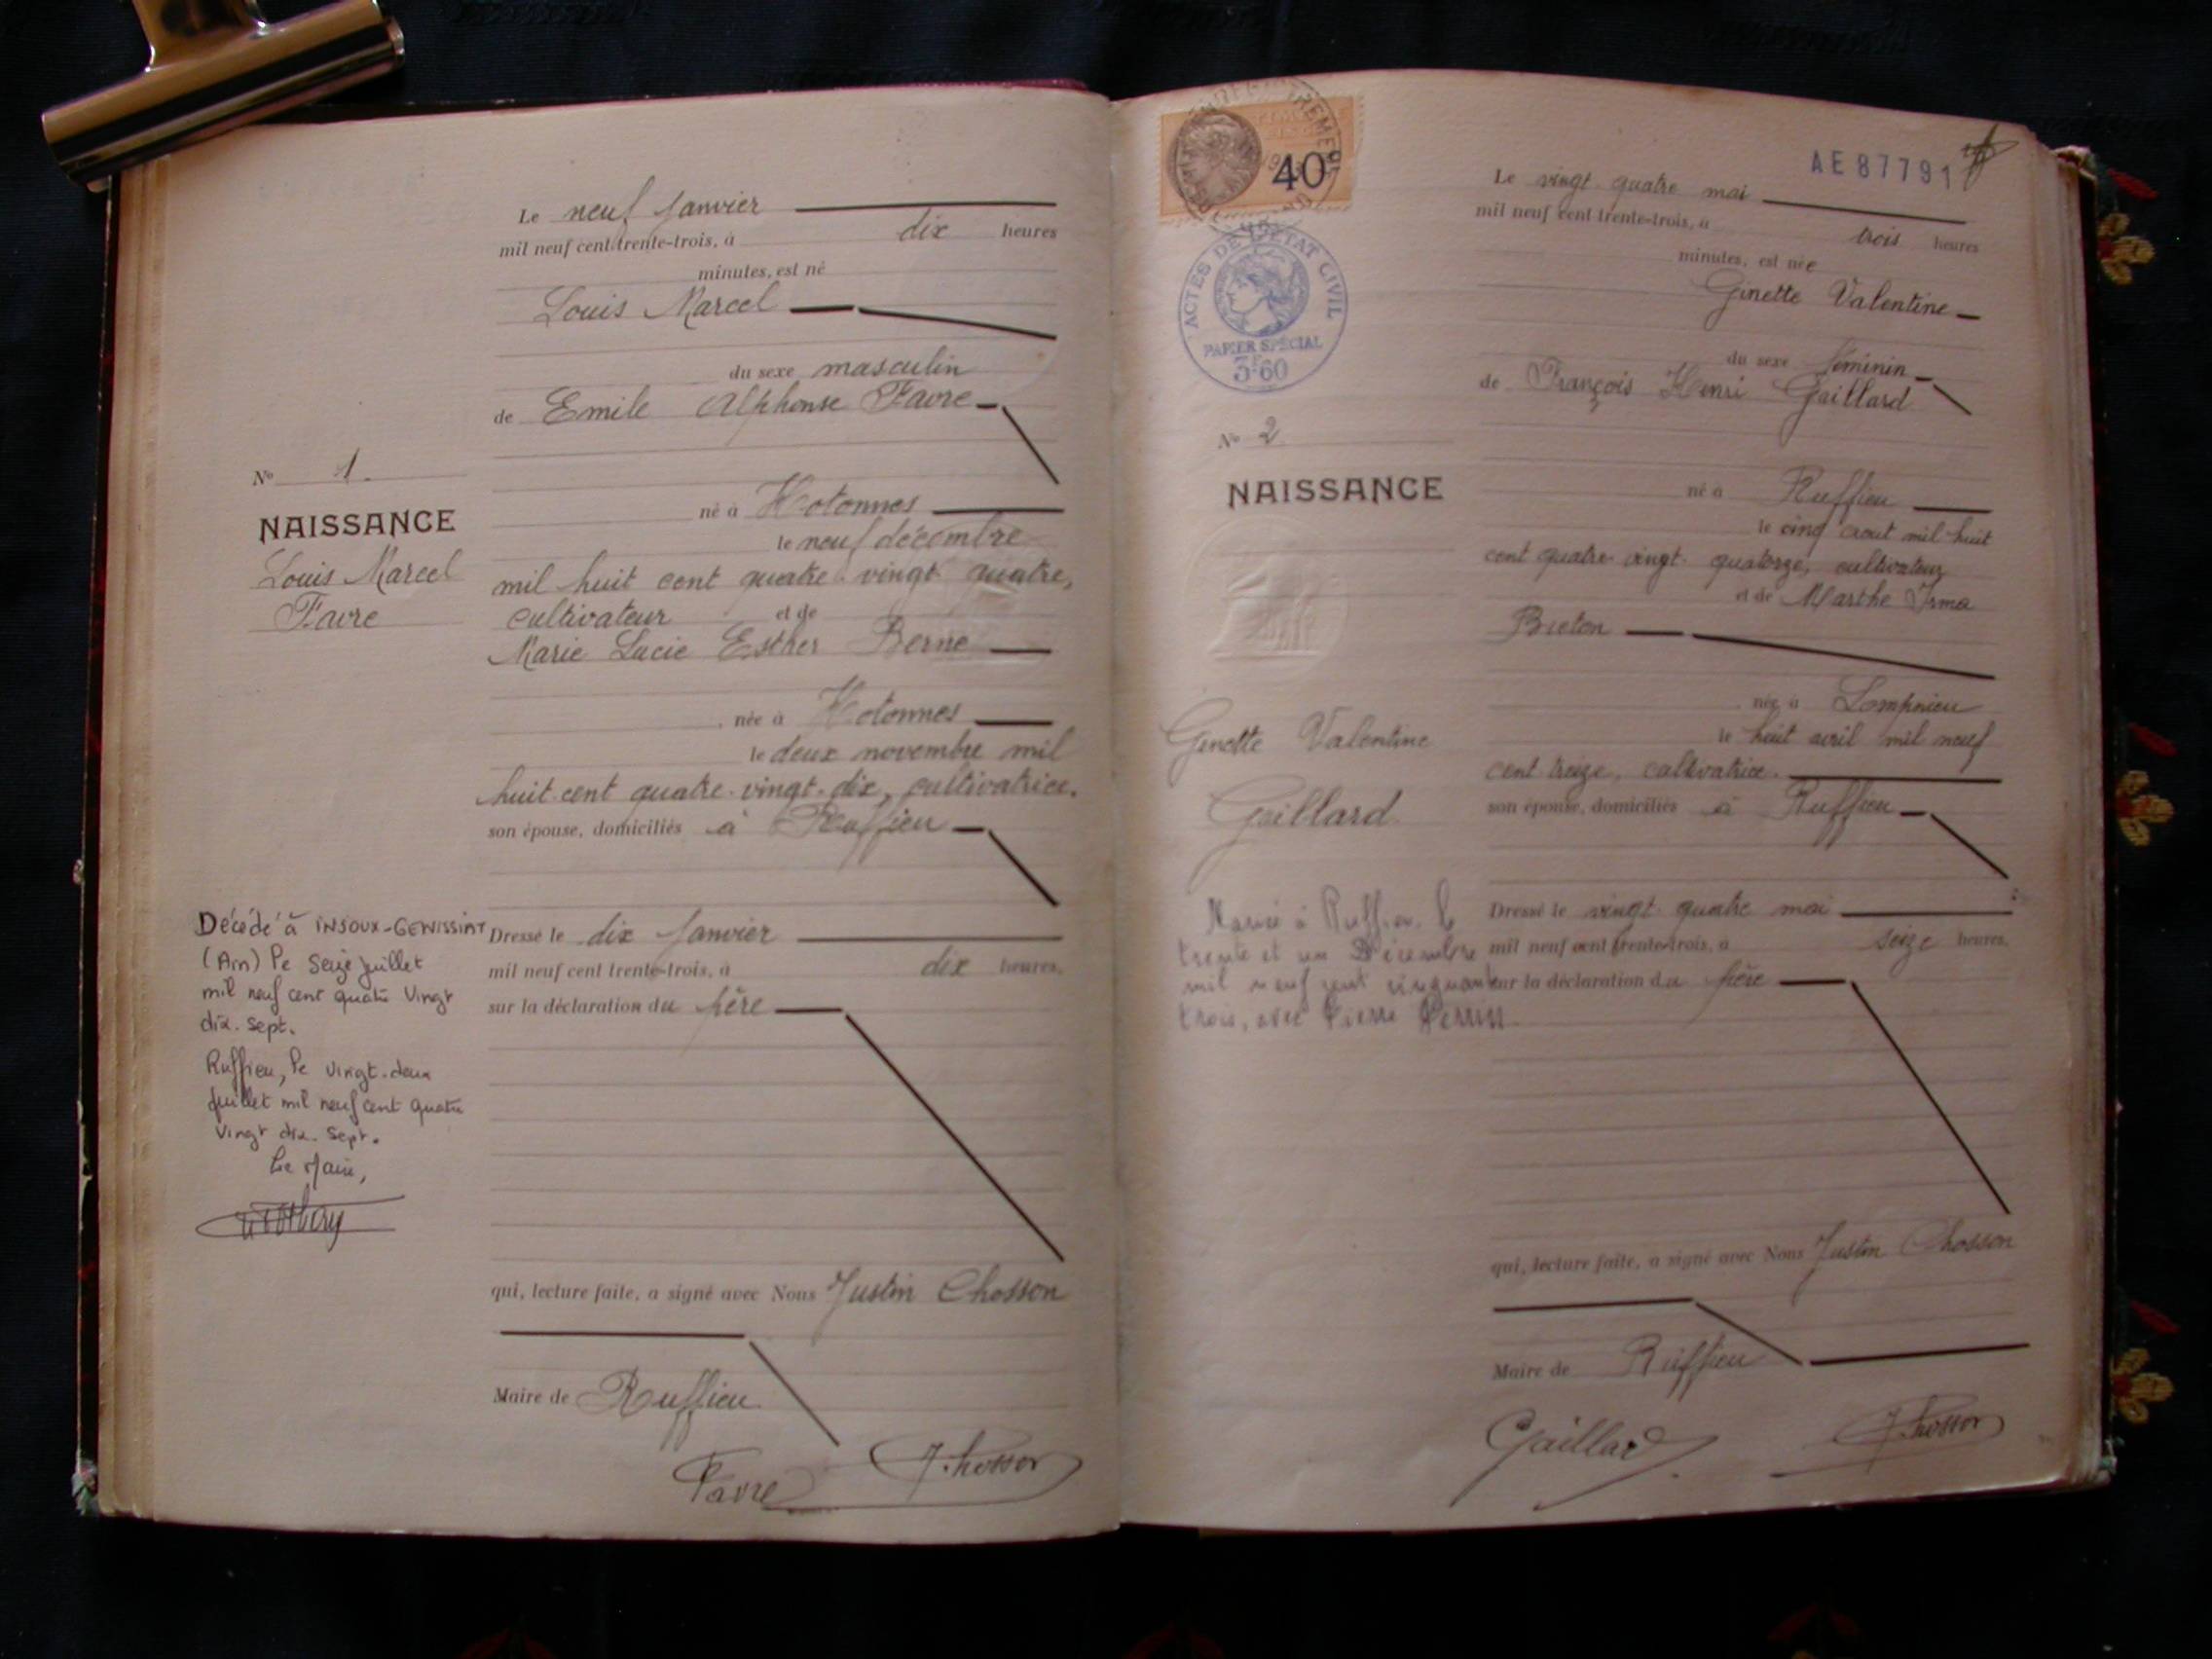 Le neuf Janvier
mil neuf cent trente-trois, à dix heures
minutes, est né
Louis Marcel
du sexe masculin
de Emile Alphonse Favre
né à Hotonnes
le neuf décembre
mil huit cent quatre vingt quatre,
cultivateur et de
Marie Lucie Esther Berne
née à Hotonnes
le deux novembre mil
huit cent quatre-vingt-dix, cultivatrice.
son épouse, domiciliés à Ruffieu
Dressé le dix Janvier
mil neuf cent trente-trois, à dix heures,
sur la déclaration du père
qui, lecture faite, a signé avec Nous Justin Chosson
Maire de Ruffieu
Favre J. Chosson
No 1.
NAISSANCE
Louis Marcel
Favre
Décédé à INJOUX-GENISSIAT
(Ain) le seize juillet
mil neuf cent quatre vingt
dix. sept.
Ruffieu, le vingt-deux
juillet mil neuf cent quatre
vingt dix. sept.
Le Maire,
40c
ACTES DE L'ETAT CIVIL
PAPIER SPÉCIAL
3F60
AE 87791
No 2
NAISSANCE
Ginette Valentine
Gaillard
Mariée à Ruffieu, le
trente et un Décembre
mil neuf cent cinquante
trois, avec Pierre Perrin
Le vingt quatre mai
mil neuf cent trente-trois, à trois heures
minutes, est née
Ginette Valentine
du sexe féminin
de François Henri Gaillard
né à Ruffieu
le cinq aout mil huit
cent quatre vingt quatorze, cultivateur
et de Marthe Irma
Breton
née à Lompnieu
le huit avril mil neuf
cent treize, cultivatrice.
son épouse, domiciliés à Ruffieu
Dressé le vingt quatre mai
mil neuf cent trente-trois, à seize heures,
sur la déclaration du père
qui, lecture faite, a signé avec Nous Justin Chosson
Maire de Ruffieu
Gaillard J. Chosson